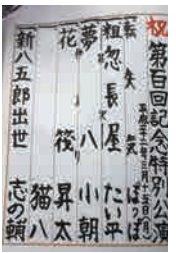 祝 第百回記念特別公演
平成二十一年三月十五日(日)
元犬 市 ぽっぽ
粗忽長屋 たい平
夢八 小朝
花筏 昇太
猫八
新八五郎出世 志の輔